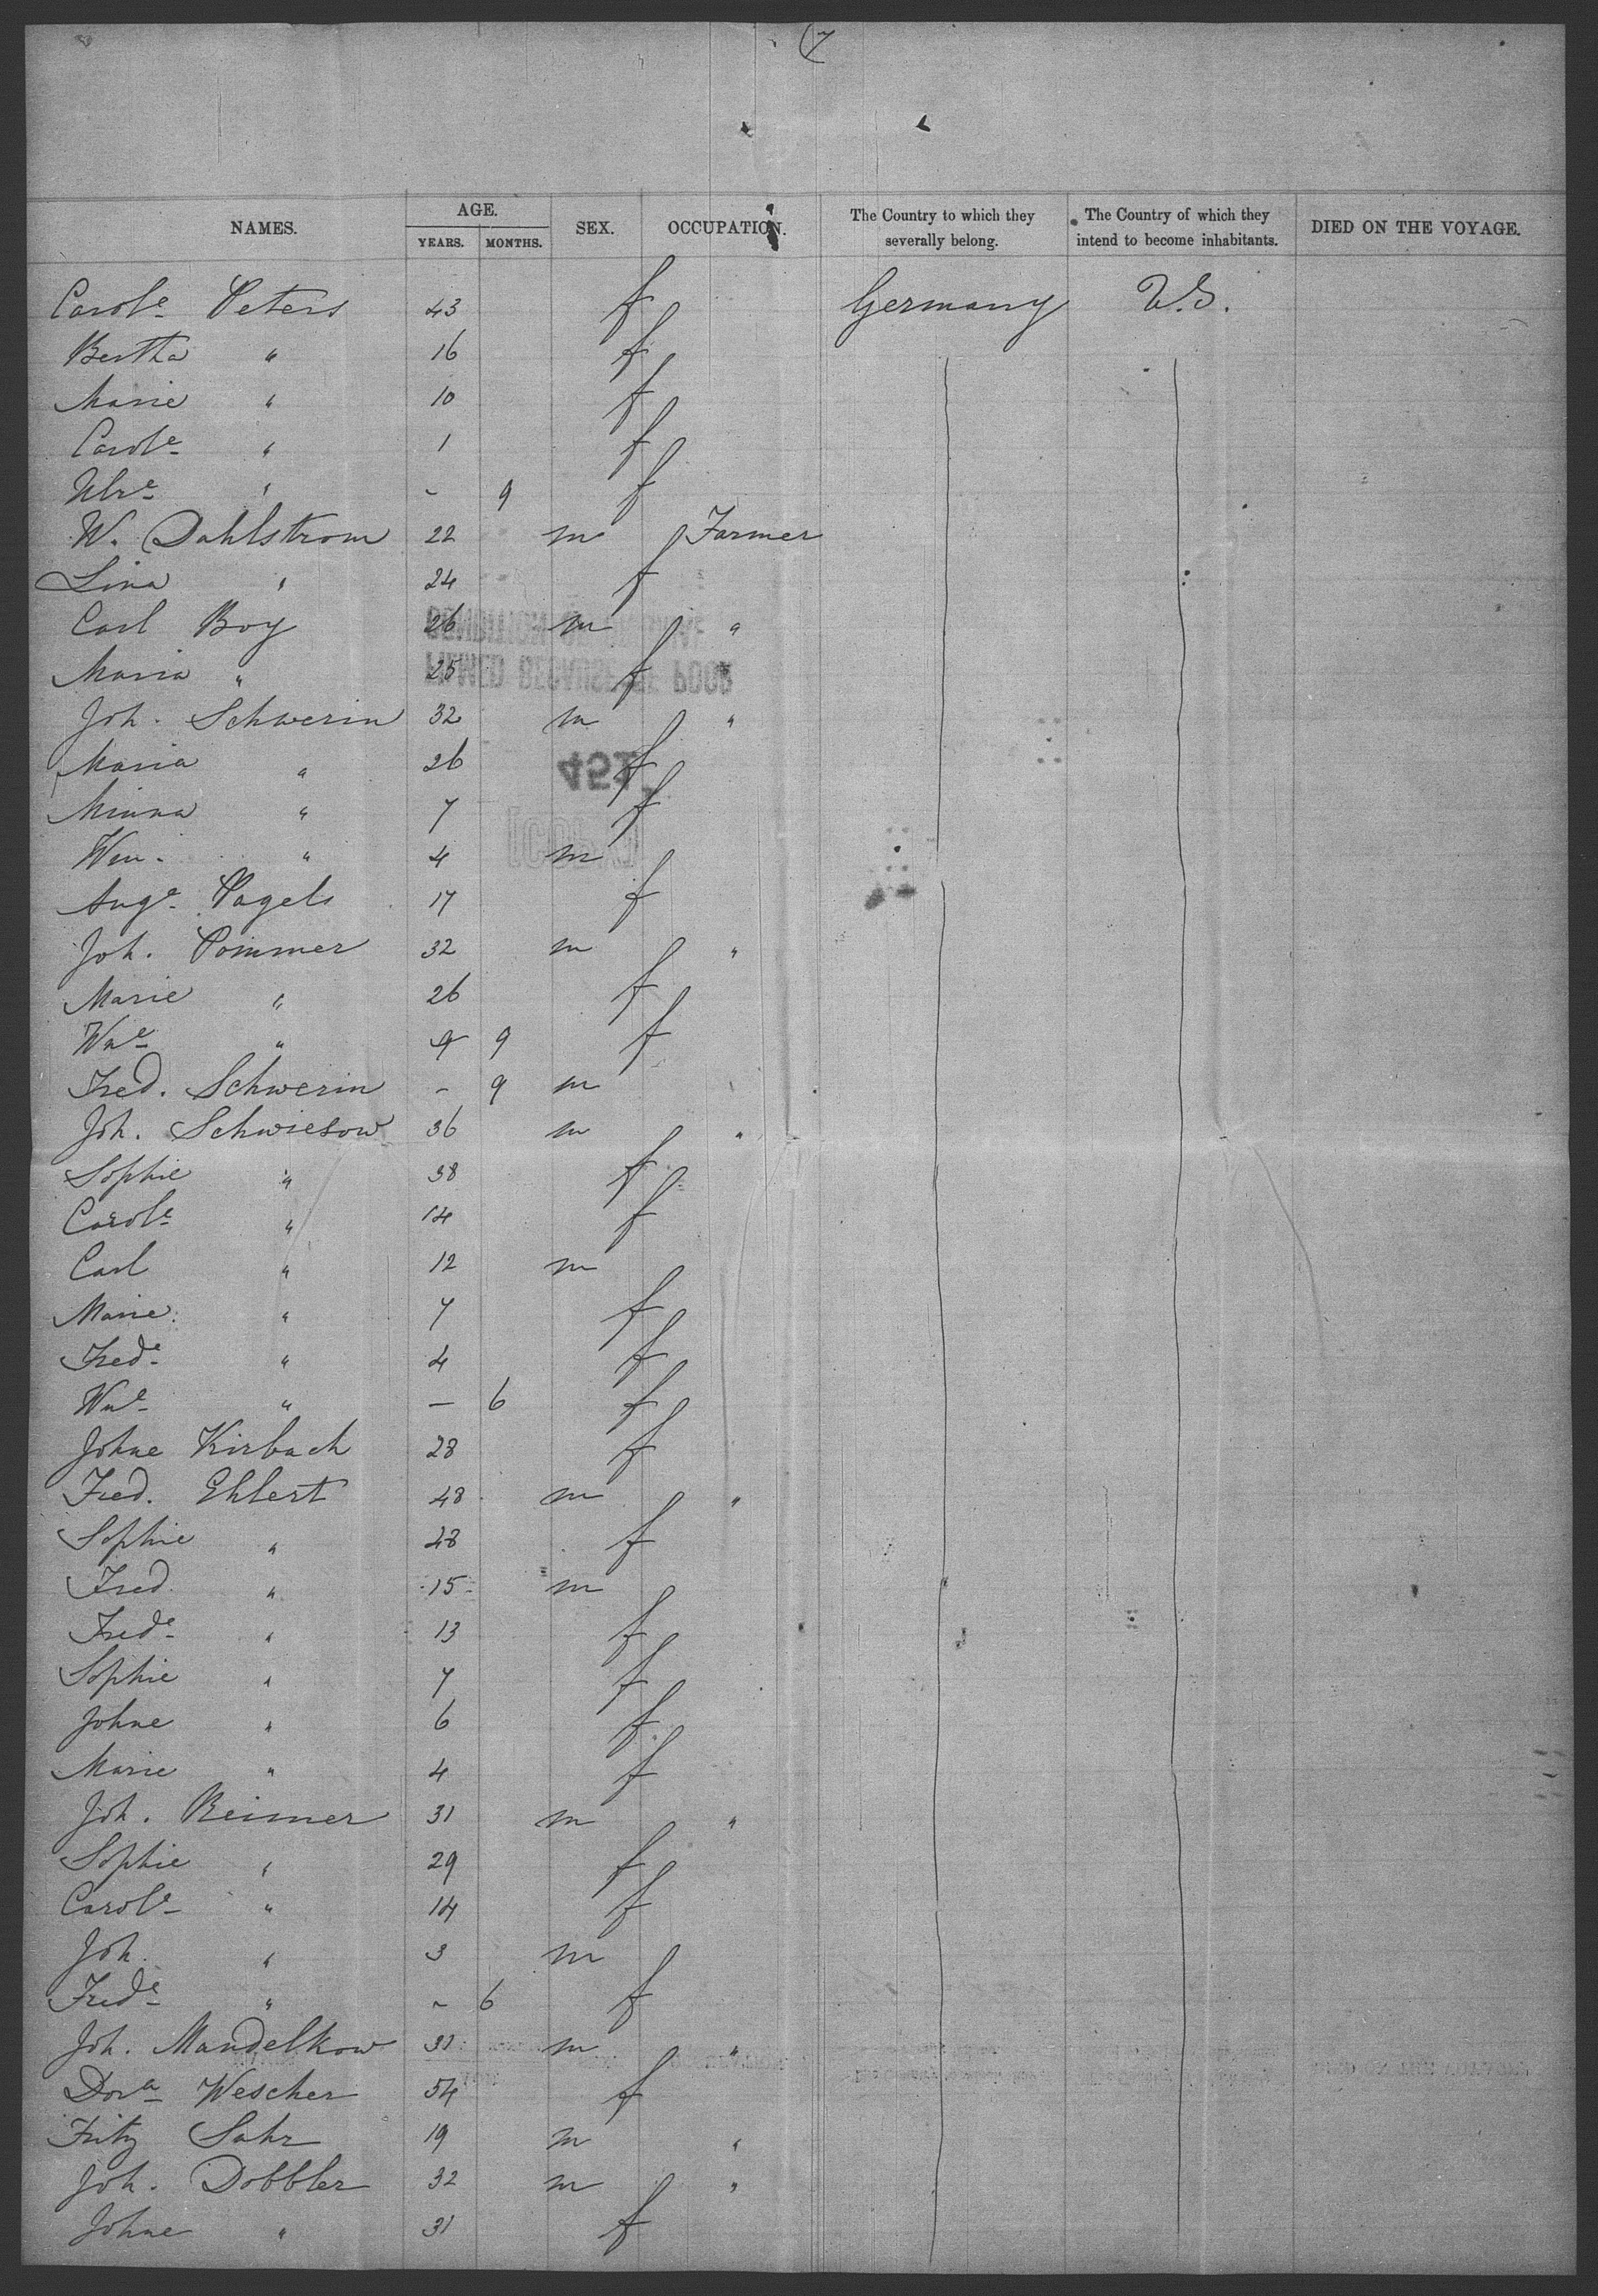 7
NAMES. AGE. YEARS. MONTHS. SEX. OCCUPATION. The Country to which they severally belong. The Country of which they intend to become inhabitants. DIED ON THE VOYAGE.
Carole Peters 43 f Germany U.S.
Bertha " 16 f
Marie " 10 f
Carole " 1 f
Ulre " - 9 f
W. Dahlstrom 22 m Farmer
Lina " 24 f
Carl Boy 26 m "
Maria " 25 f
Joh. Schwerin 32 m "
Maria " 26 f
Minna " 7 f
Wm. " 4 m
Auge Pagels 17 f
Joh. Pommer 32 m "
Marie " 26 f
Wme " 9 9 f
Fred. Schwerin - 9 m
Joh. Schwiesow 36 m "
Sophie " 38 f
Carole " 14 f
Carl " 12 m
Marie " 7 f
Frede " 4 f
Wme " - 6 f
Johne Kirbach 28 f
Fred. Ehlert 48 m "
Sophie " 48 f
Fred " 15 m
Frede " 13 f
Sophie " 7 f
Johne " 6 f
Marie " 4 f
Joh. Reimer 31 m "
Sophie " 29 f
Carole " 14 f
Joh. " 3 m
Frede " - 6 f
Joh. Mandelkow 31 m "
Dora Wescher 54 f
Fritz Sahr 19 m "
Joh. Dobbler 32 m "
Johne " 31 f